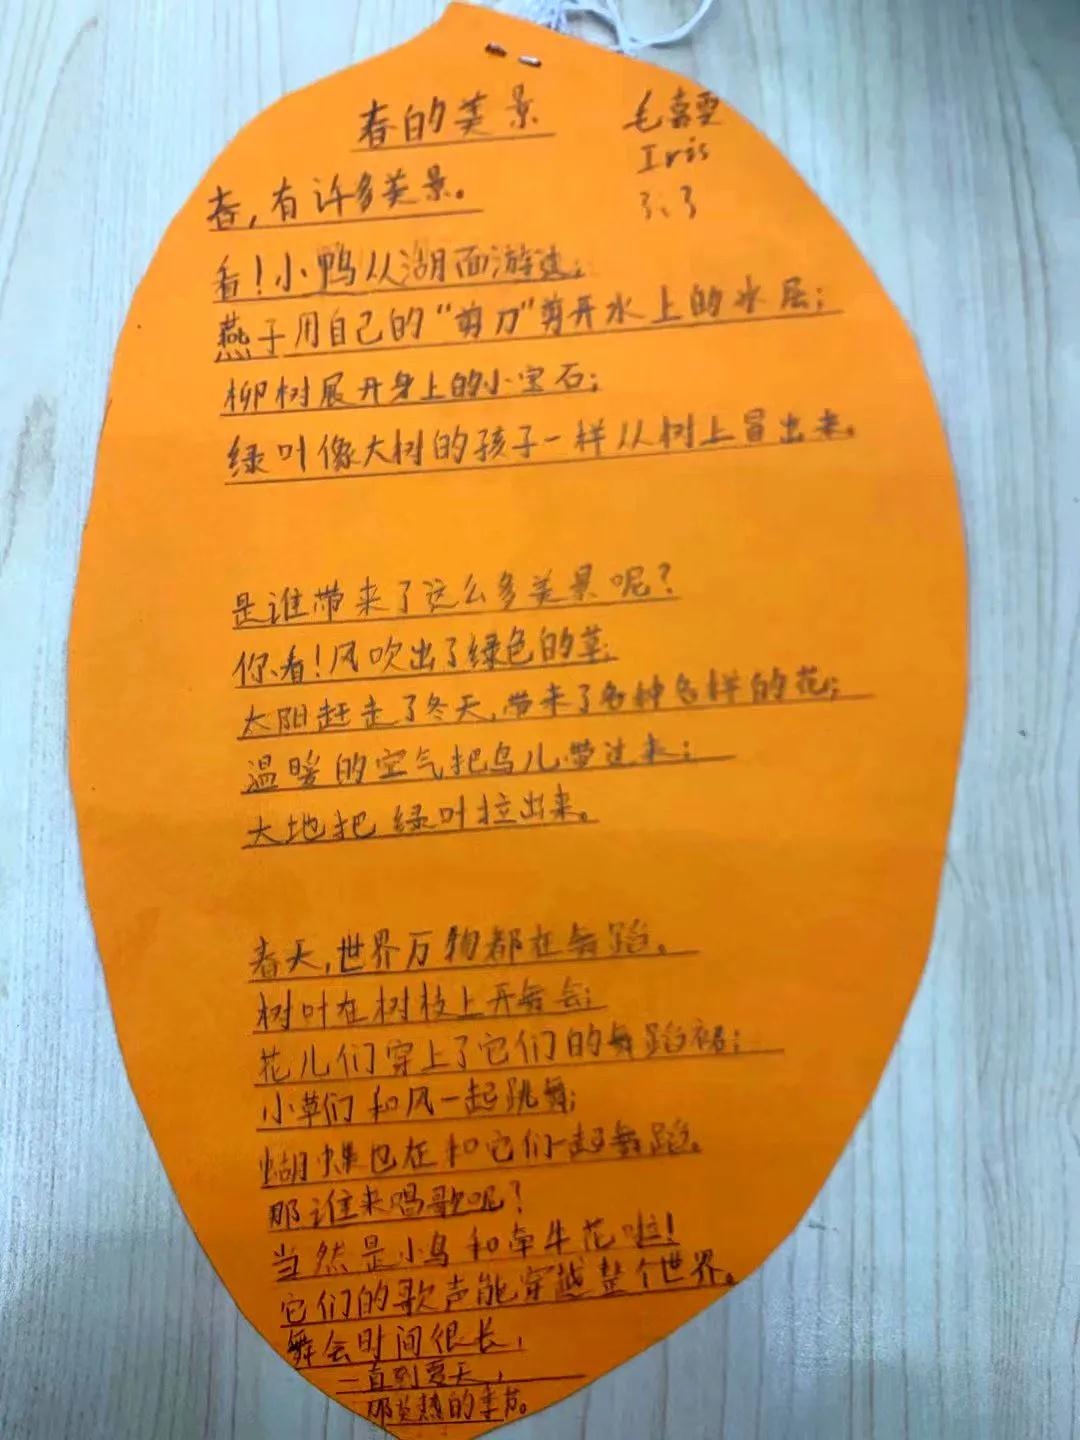 春的美景
毛嘉雯
Iris
3、3
春,有许多美景。
看!小鸭从湖面游过;
燕子用自己的“剪刀”剪开水上的冰层;
柳树展开身上的小宝石;
绿叶像大树的孩子一样从树上冒出来。
是谁带来了这么多美景呢?
你看!风吹出了绿色的草;
太阳赶走了冬天,带来了各种各样的花;
温暖的空气把鸟儿带过来;
大地把绿叶拉出来。
春天,世界万物都在舞蹈。
树叶在树枝上开舞会;
花儿们穿上了它们的舞蹈裙;
小草们和风一起跳舞;
蝴蝶也在和它们一起舞蹈。
那谁来唱歌呢?
当然是小鸟和牵牛花啦!
它们的歌声能穿越整个世界。
舞会时间很长,
一直到夏天,
那炎热的季节。